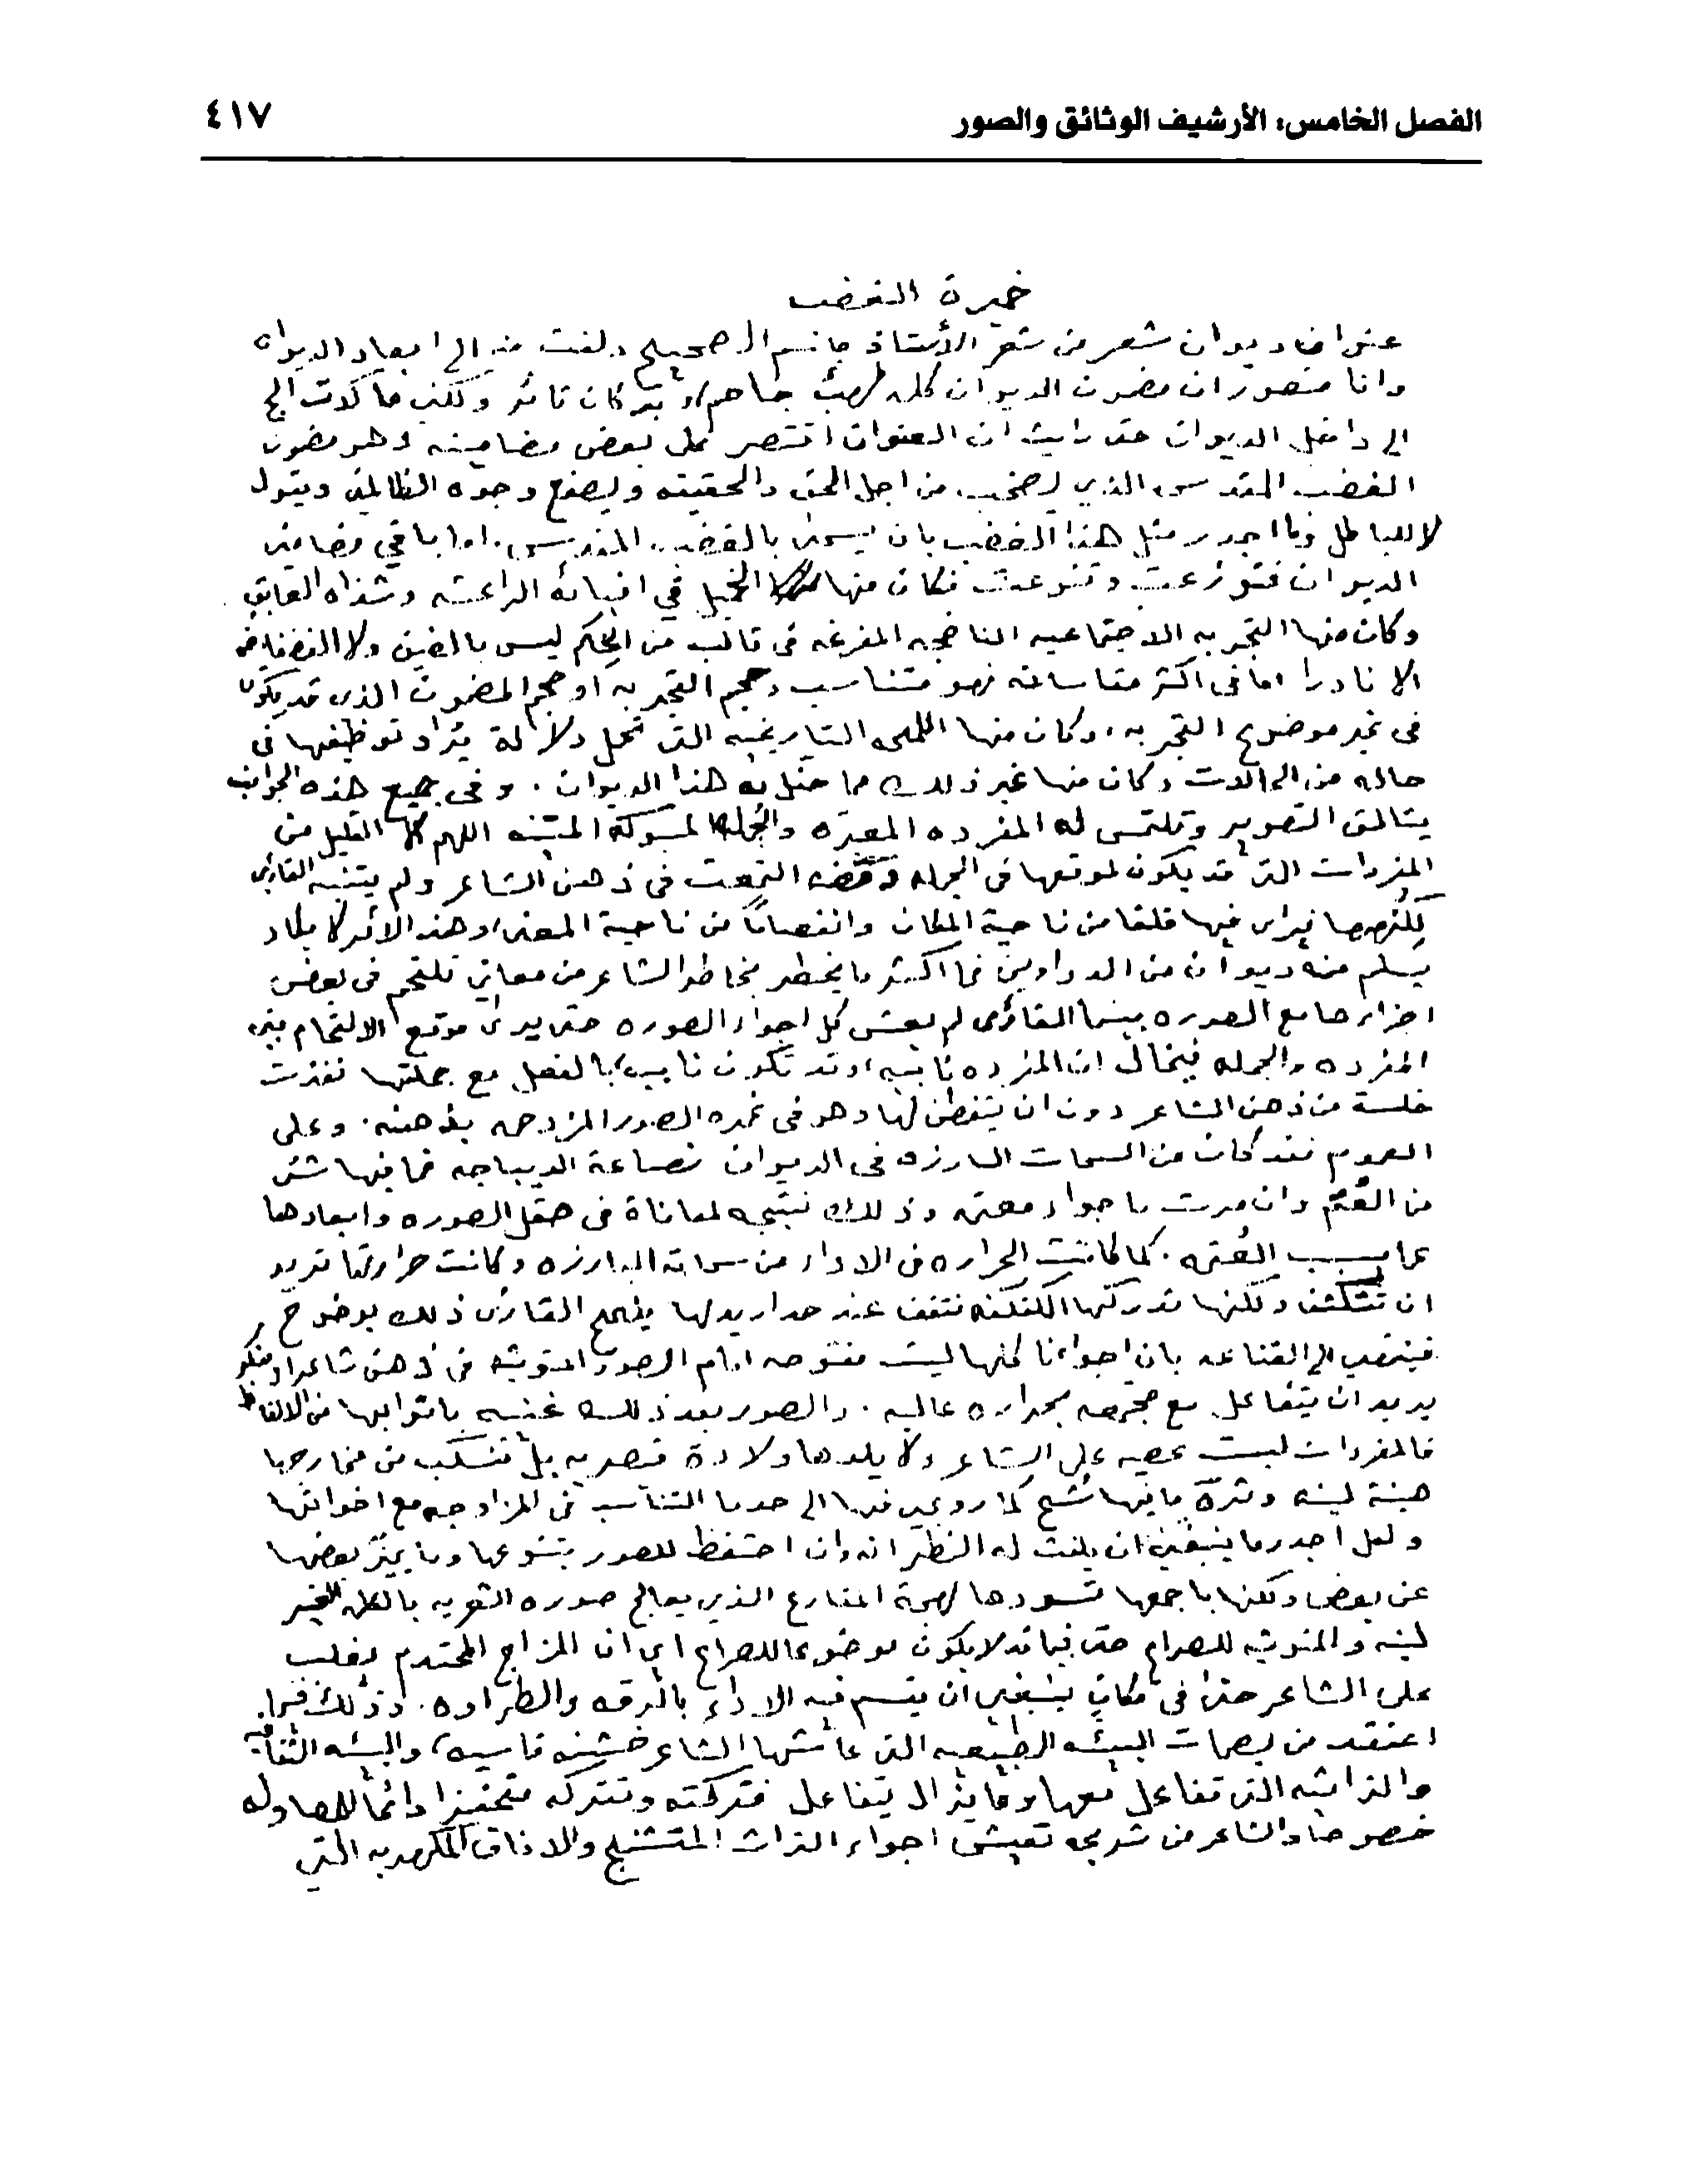 الفصل الخامس: الأرشيف الوثائق والصور
٤١٧
خميرة الغضب
ديوان شعر من شعر الأستاذ جاسم الصحيح منه الى ابعاد الديوان
وانا متصور ان مضمون الديوان كله لهب جاحم و بركان ثائر ولكني ما كدت الج
الى داخل الديوان حتى رايت ان العنوان اقتصر على بعض مضامينه وهو مضمون
الغضب المقدس الذي يصخب من اجل الحق والحقيقه وليصفع وجوه الظالمين ويقول
لا للباطل وما اجدر مثل هذا الغضب بان يسمى بالغضب المقدس. اما باقي مضامين
الديوان فتوزعت وتنوعت فكان منها النخيل في افيائه الرائعه وشذاه العابق
وكان منها التجربه الاجتماعيه الناضجه المفرغه في قالب من الحكم ليس بالضيق ولا الفضفاض
الا نادرا اما في اكثر مقاساته فهو متناسب وحجم التجربه او حجم المضمون الذى قد يكون
فى غير موضوع التجربه، وكان منها اللمحه التاريخيه التى تحمل دلالة يراد توظيفها فى
حاله من الحالات وكان منها غير ذلك مما حفل به هذا الديوان. وفى جميع هذه الجوانب
يتالق التصوير وتلتمس له المفرده المعبره والجمله المسبوكة المتينه اللهم الا القليل من
المفردات التى قد يكون لموقعها فى الجمله ومضه التمعت فى ذهن الشاعر ولم يتنبه القارئ
فيرى فيها قلقا من ناحية المكان وانفصاما من ناحية المعنى، وهذا الأمر لا يكاد
يسلم منه ديوان من الدواوين فما اكثر ما يخطر بخاطر الشاعر من معاني تلتحم فى بعض
اجزاءها مع الصوره بينما القارئ لم يعش كل اجواء الصوره حتى يرى موقع الالتحام بين
المفرده والجمله فيخال ان المفرده نابيه، وقد تكون نابيه بالفعل مع جملتها نفذت
خلسة من ذهن الشاعر دون ان يتفطن لها وهو فى غمره الصور المزدحمه بذهنه. وعلى
العموم فقد كان من السمات البارزه فى الديوان نصاعة الديباجه فما فيها شئ
من العتم وان مرت باجواء معتمه وذلك نتيجه لمعاناة فى صقل الصوره وابعادها
عما يسبب العتمه. كما كانت الحراره فى الاداء من سماته البارزه وكانت حرارتها تريد
ان ولكنها تدركها فتقف عند حد اريد لها يلمح القارئ ذلك بوضوح
الى القناعه بان اجواءنا كلها ليست مفتوحه امام الصور فى ذهن شاعر او مفكر
يريد ان يتفاعل مع مجتمعه بحراره عاليه. والصور بعد ذلك غنيه باثوابها من الالفاظ
فالمفردات ليست عصيه على الشاعر ولا يلدها ولادة قيصريه بل تنسكب من مخارجها
هينة لينه وثرّة ما فيها شح كما روعي فيها الى حد ما التناسب فى المزاوجه مع اخواتها
ولعل اجدر ما ينبغي ان يلفت له النظر انه وان احتفظ للصور بتنوعها وما يميز بعضها
عن بعض ولكنها باجمعها تسودها لهجة المقارع الذي يعالج صوره الشعريه بالكلمه الغير
لينه والمتوثبه للصدام حتى فيما قد لا يكون موضوعا للصراع اي ان المزاج المحتدم يغلب
على الشاعر حتى فى مكان ينبغي ان يتسم فيه الاداء بالرقه والطراوه. وذلك فيما
اعتقد من بصمات البيئه الطبيعيه التى عاشها الشاعر خشنه قاسيه، والبيئه الثقافيه
والتراثيه التى تفاعل معها وما يزال يتفاعل فتركته وتتركه متحفزا دائما للمصاوله
خصوصا والشاعر من شريحه تعيش اجواء التراث المتشنج والافاق المكهربه التي